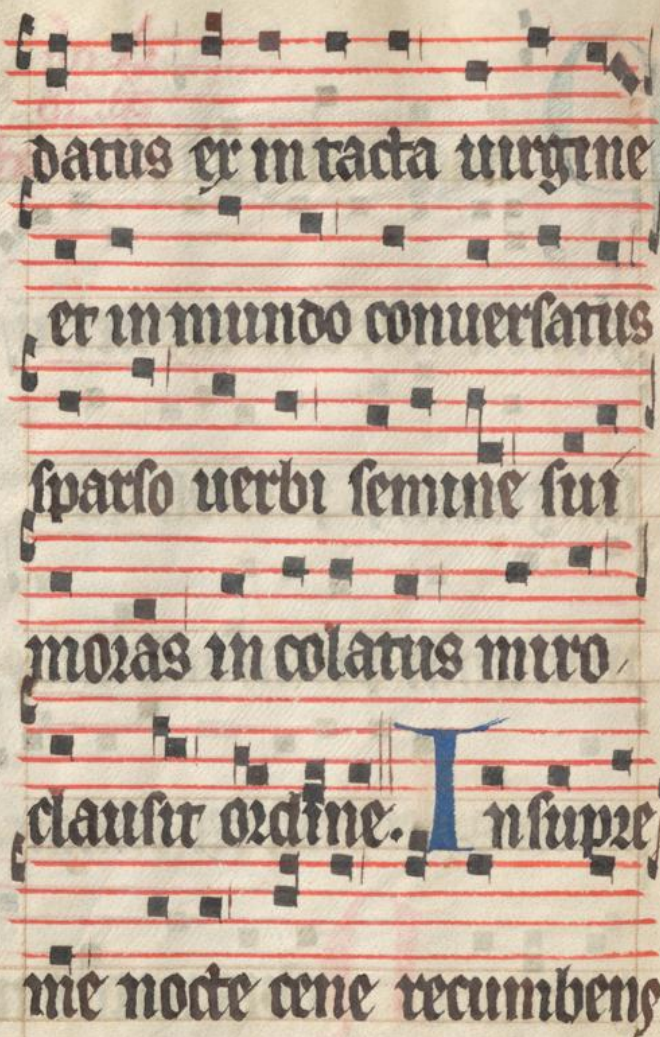 datus ex in tacta uirgine
et in mundo conuersatus
sparso uerbi semine sui
moras in colatus miro
clausit ordine. Insupre
me nocte cene recumbens